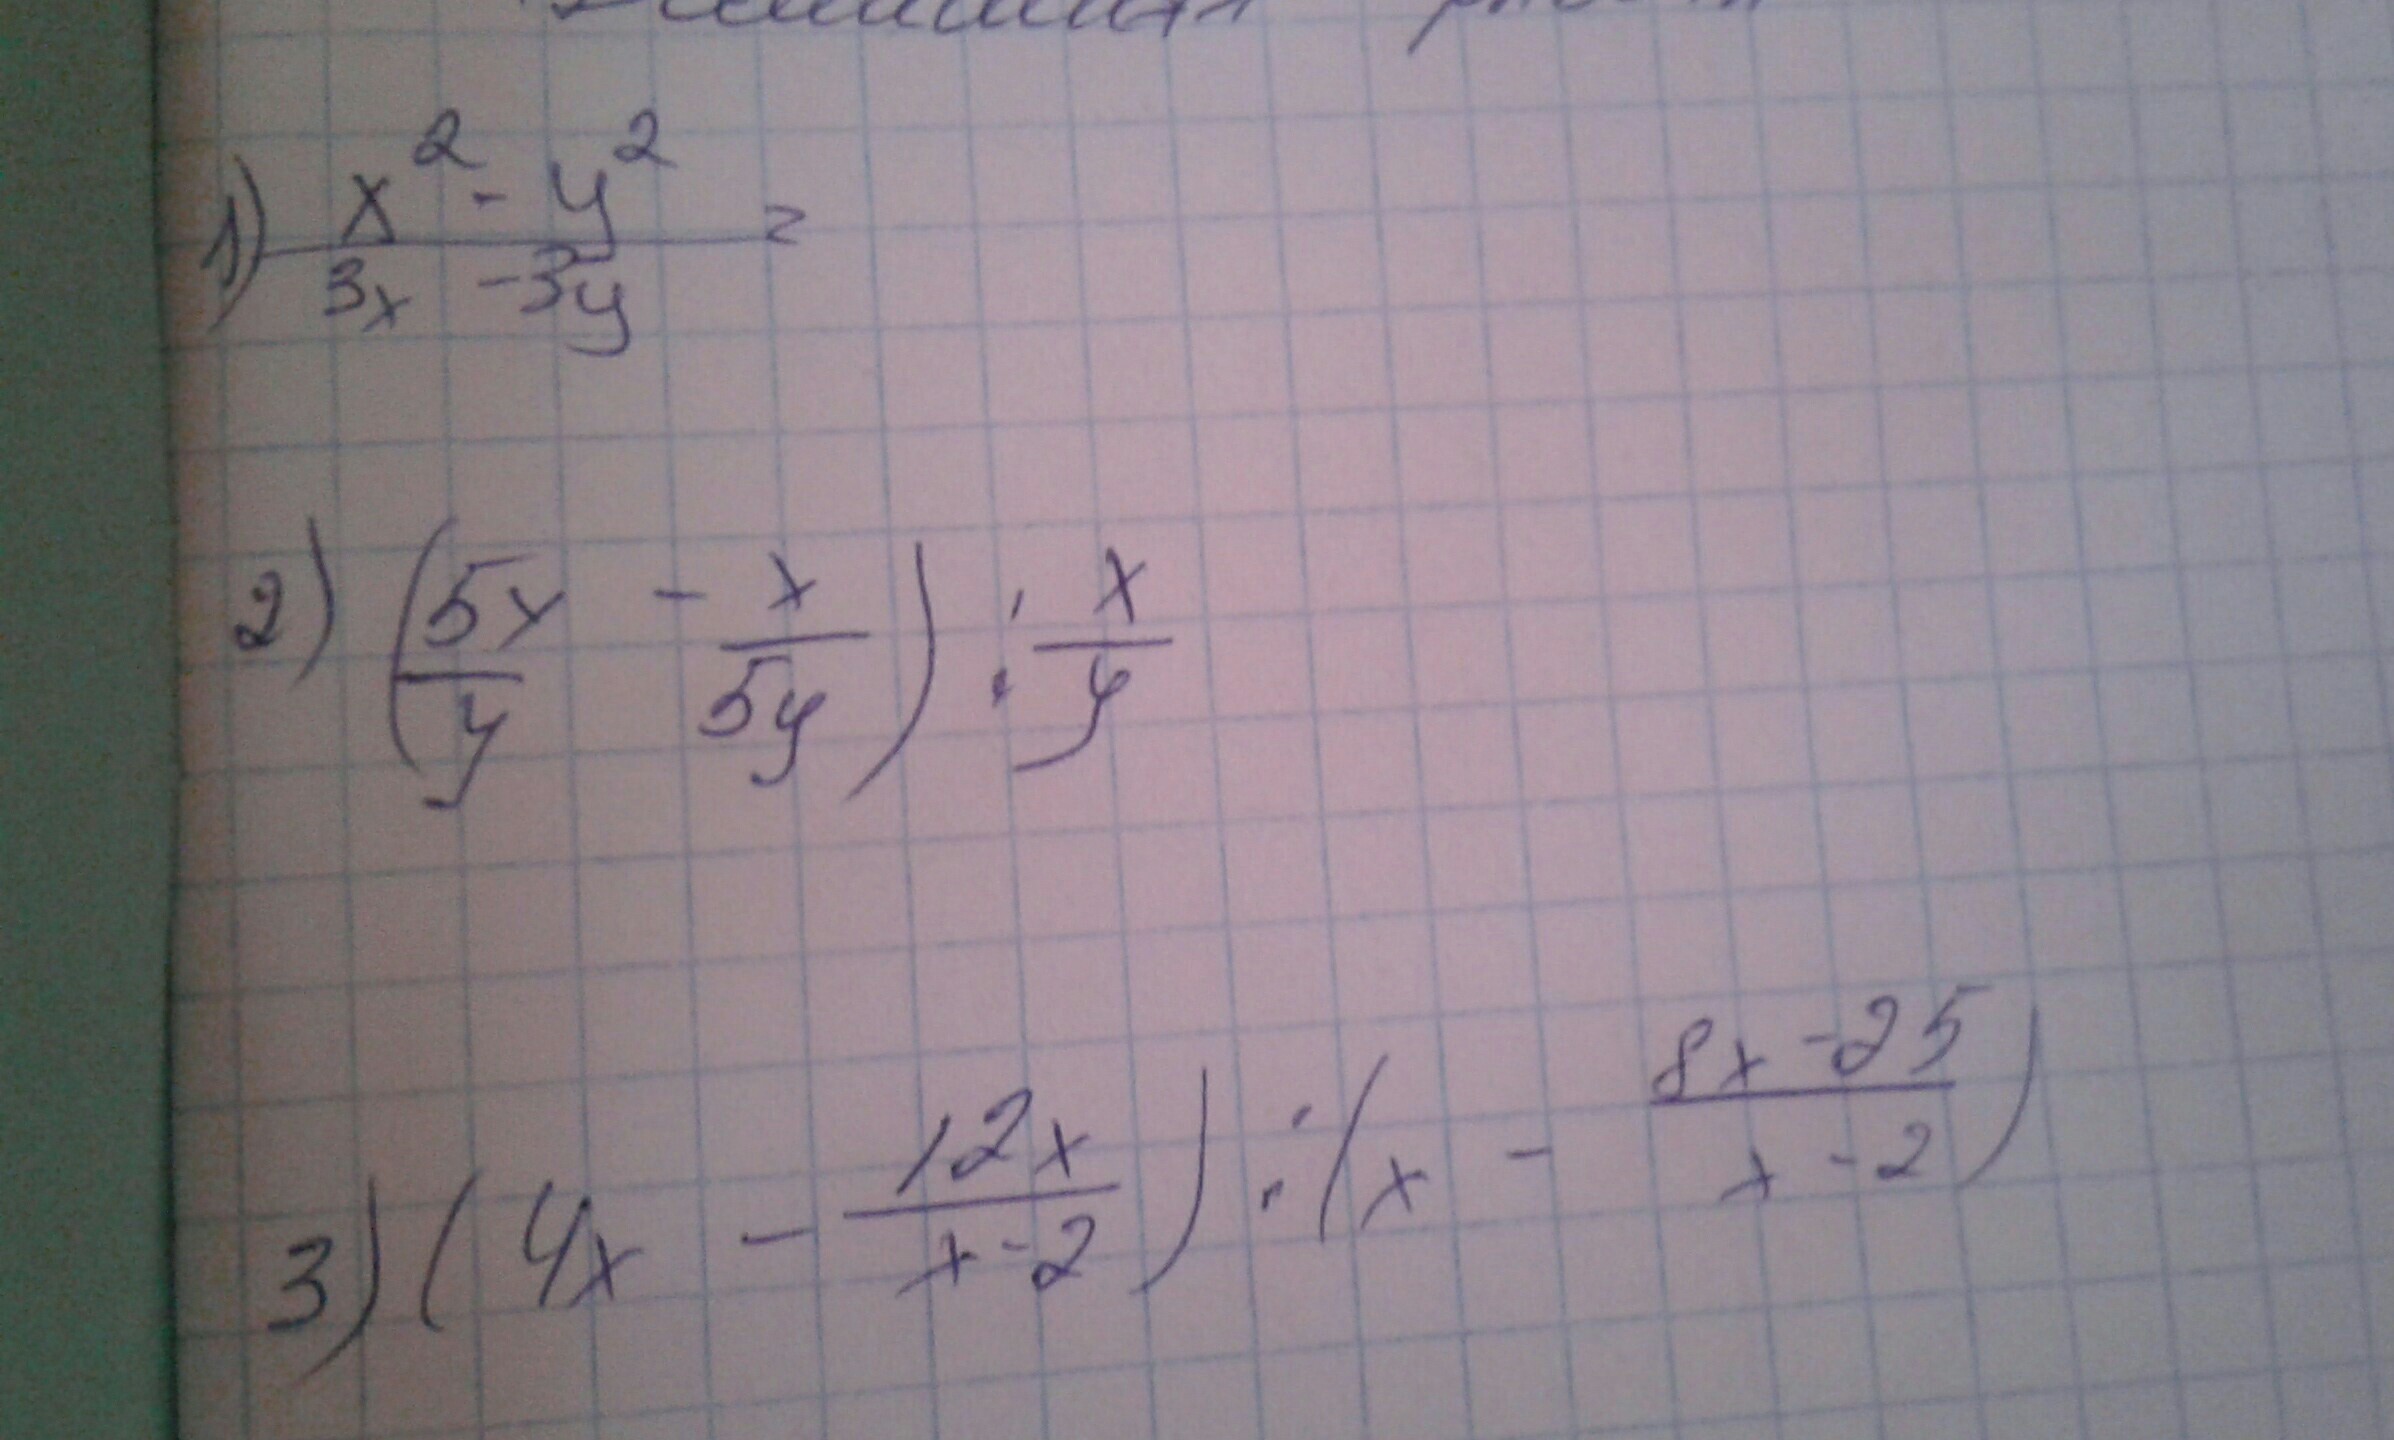 1) (x² - y²)/(3x - 3y) =
2) (5x/y - x/5y) : x/y
3) (4x - 12x/(x-2)) : (x - (8x-25)/(x-2))